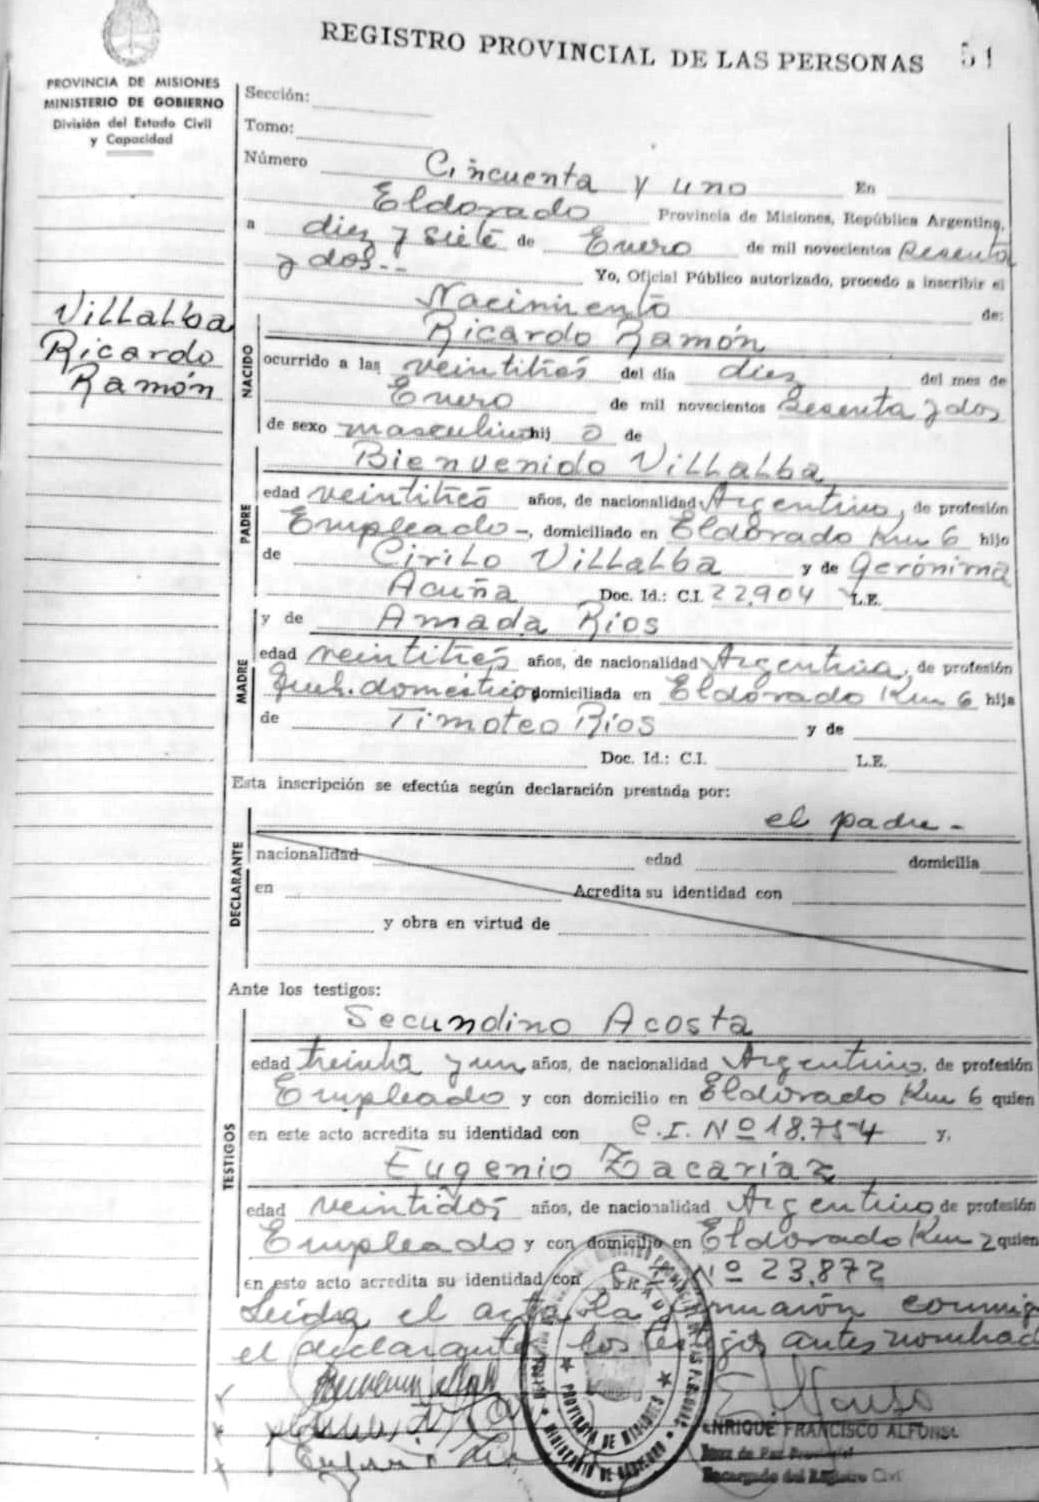 REGISTRO PROVINCIAL DE LAS PERSONAS 51
PROVINCIA DE MISIONES
MINISTERIO DE GOBIERNO
División del Estado Civil
y Capacidad
Villalba
Ricardo
Ramón
Sección:
Tomo:
Número Cincuenta y uno En
Eldorado Provincia de Misiones, República Argentina,
a diez y siete de Enero de mil novecientos sesenta
y dos.-- Yo, Oficial Público autorizado, procedo a inscribir el
Nacimiento de:
NACIDO
Ricardo Ramón
ocurrido a las veintitrés del día diez del mes de
Enero de mil novecientos sesenta y dos
de sexo masculino hij o de
PADRE
Bienvenido Villalba,
edad veintitrés años, de nacionalidad Argentino, de profesión
Empleado-, domiciliado en Eldorado Km 6 hijo
de Cirilo Villalba y de Gerónima
Acuña Doc. Id.: C.I. 22.904 L.E.
MADRE
y de Amada Rios
edad veintitrés años, de nacionalidad Argentina, de profesión
Queh. doméstico domiciliada en Eldorado Km 6 hija
de Timoteo Rios y de
Doc. Id.: C.I. L.E.
Esta inscripción se efectúa según declaración prestada por:
el padre-
DECLARANTE
nacionalidad edad domicilia
en Acredita su identidad con
y obra en virtud de
Ante los testigos:
TESTIGOS
Secundino Acosta
edad treinta y un años, de nacionalidad Argentino, de profesión
Empleado y con domicilio en Eldorado Km 6 quien
en este acto acredita su identidad con C.I. Nº 18.754 y,
Eugenio Zacaríaz
edad veintidós años, de nacionalidad Argentino, de profesión
Empleado y con domicilio en Eldorado Km 2 quien
en este acto acredita su identidad con Nº 23.872
Leída el acta la conmigo
el declarante los testigos antes nombrad
PROVINCIA DE MISIONES
MINISTERIO DE GOBIERNO
ENRIQUE FRANCISCO ALFONSO
Juez de Paz Provincial
Encargado del Registro Civil